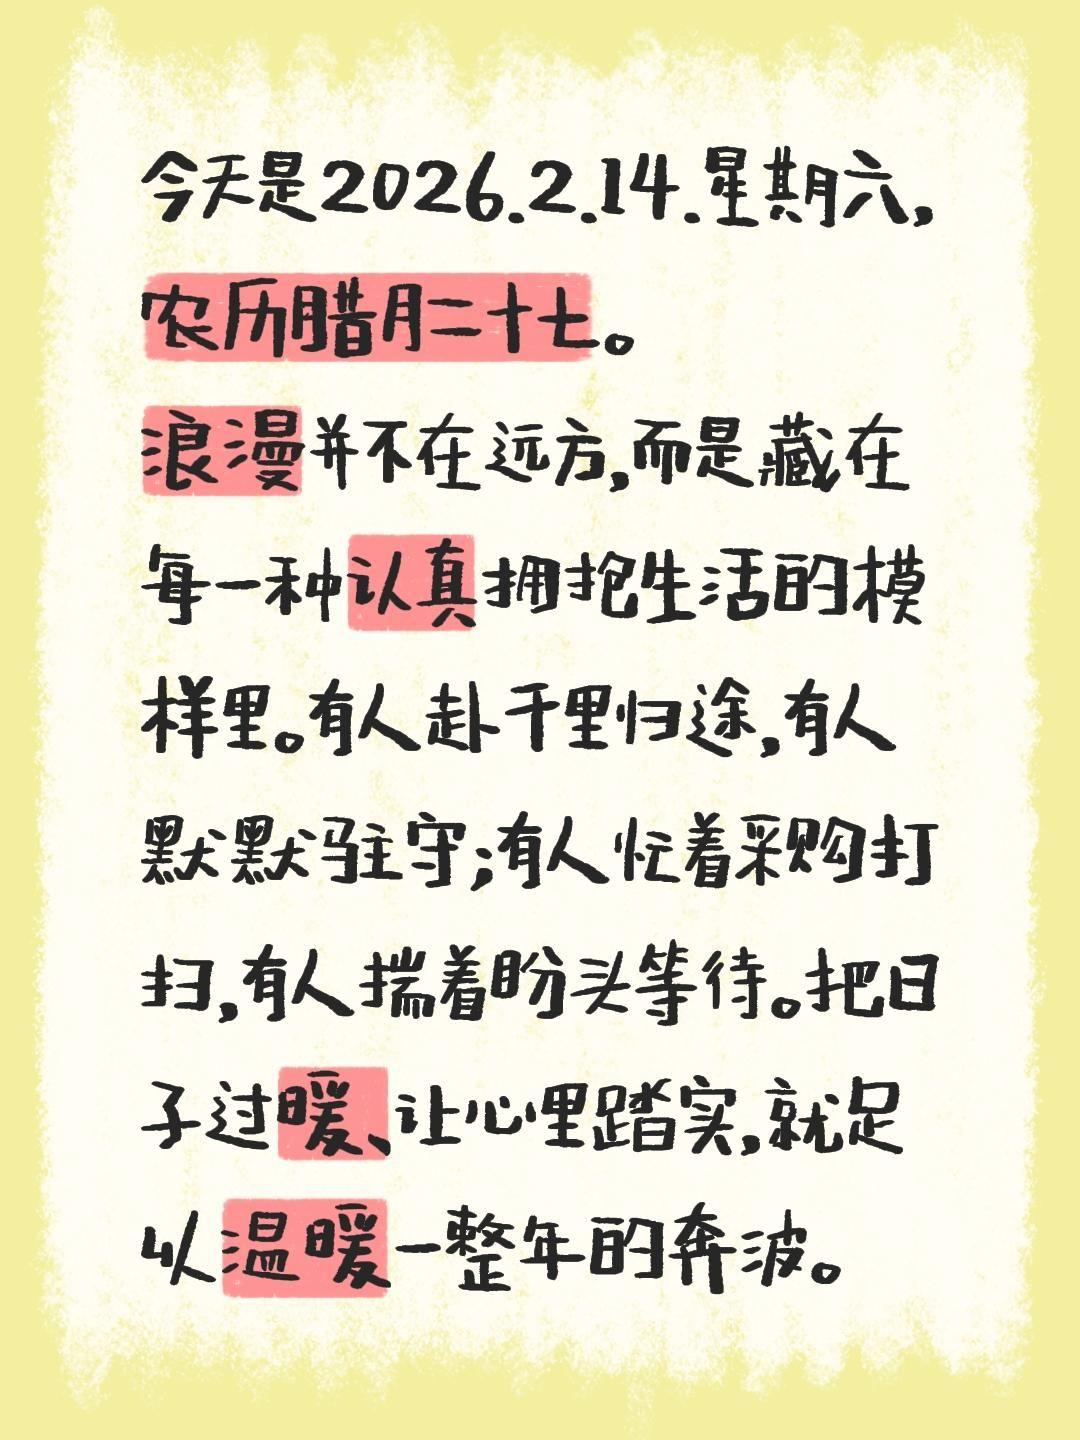 今天是2026.2.14.星期六，
农历腊月二十七。
浪漫并不在远方，而是藏在
每一种认真拥抱生活的模
样里。有人赴千里归途，有人
默默驻守；有人忙着采购打
扫，有人揣着盼头等待。把日
子过暖、让心里踏实，就足
以温暖一整年的奔波。